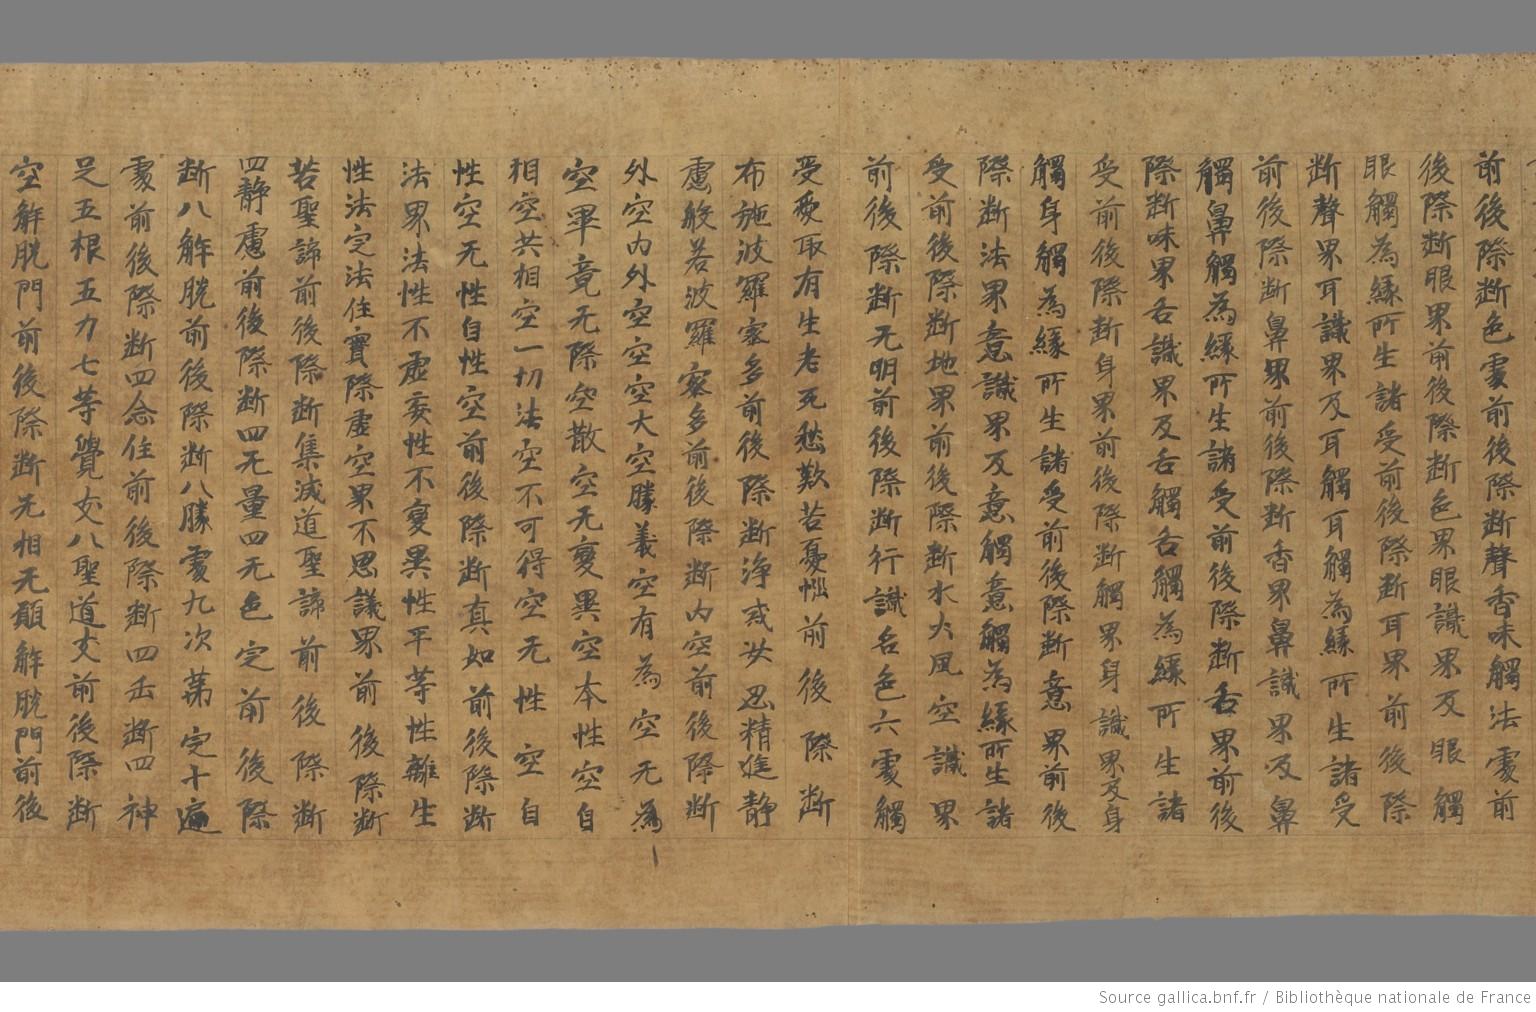 前後際断色處前後際断聲香味觸法處前
後際断眼界前後際断色界眼識界及眼觸
眼觸為縁所生諸受前後際断耳界前後際
断聲界耳識界及耳觸耳觸為縁所生諸受
前後際断鼻界前後際断香界鼻識界及鼻
觸鼻觸為縁所生諸受前後際断舌界前後
際断味界舌識界及舌觸舌觸為縁所生諸
受前後際断身界前後際断觸界身識界及身
觸身觸為縁所生諸受前後際断意界前後
際断法界意識界及意觸意觸為縁所生諸
受前後際断地界前後際断水火風空識界
前後際断无明前後際断行識名色六處觸
受愛取有生老死愁歎苦憂惱前後際断
布施波羅蜜多前後際断淨戒安忍精進静
慮般若波羅蜜多前後際断内空前後際断
外空内外空空空大空勝義空有為空无為
空畢竟无際空散空无變異空本性空自
相空共相空一切法空不可得空无性空自
性空无性自性空前後際断真如前後際断
法界法性不虚妄性不變異性平等性離生
性法定法住實際虚空界不思議界前後際断
苦聖諦前後際断集滅道聖諦前後際断
四静慮前後際断四无量四无色定前後際
断八解脱前後際断八勝處九次第定十遍
處前後際断四念住前後際断四正断四神
足五根五力七等覺支八聖道支前後際断
空解脱門前後際断无相无願解脱門前後
Source gallica.bnf.fr / Bibliothèque nationale de France